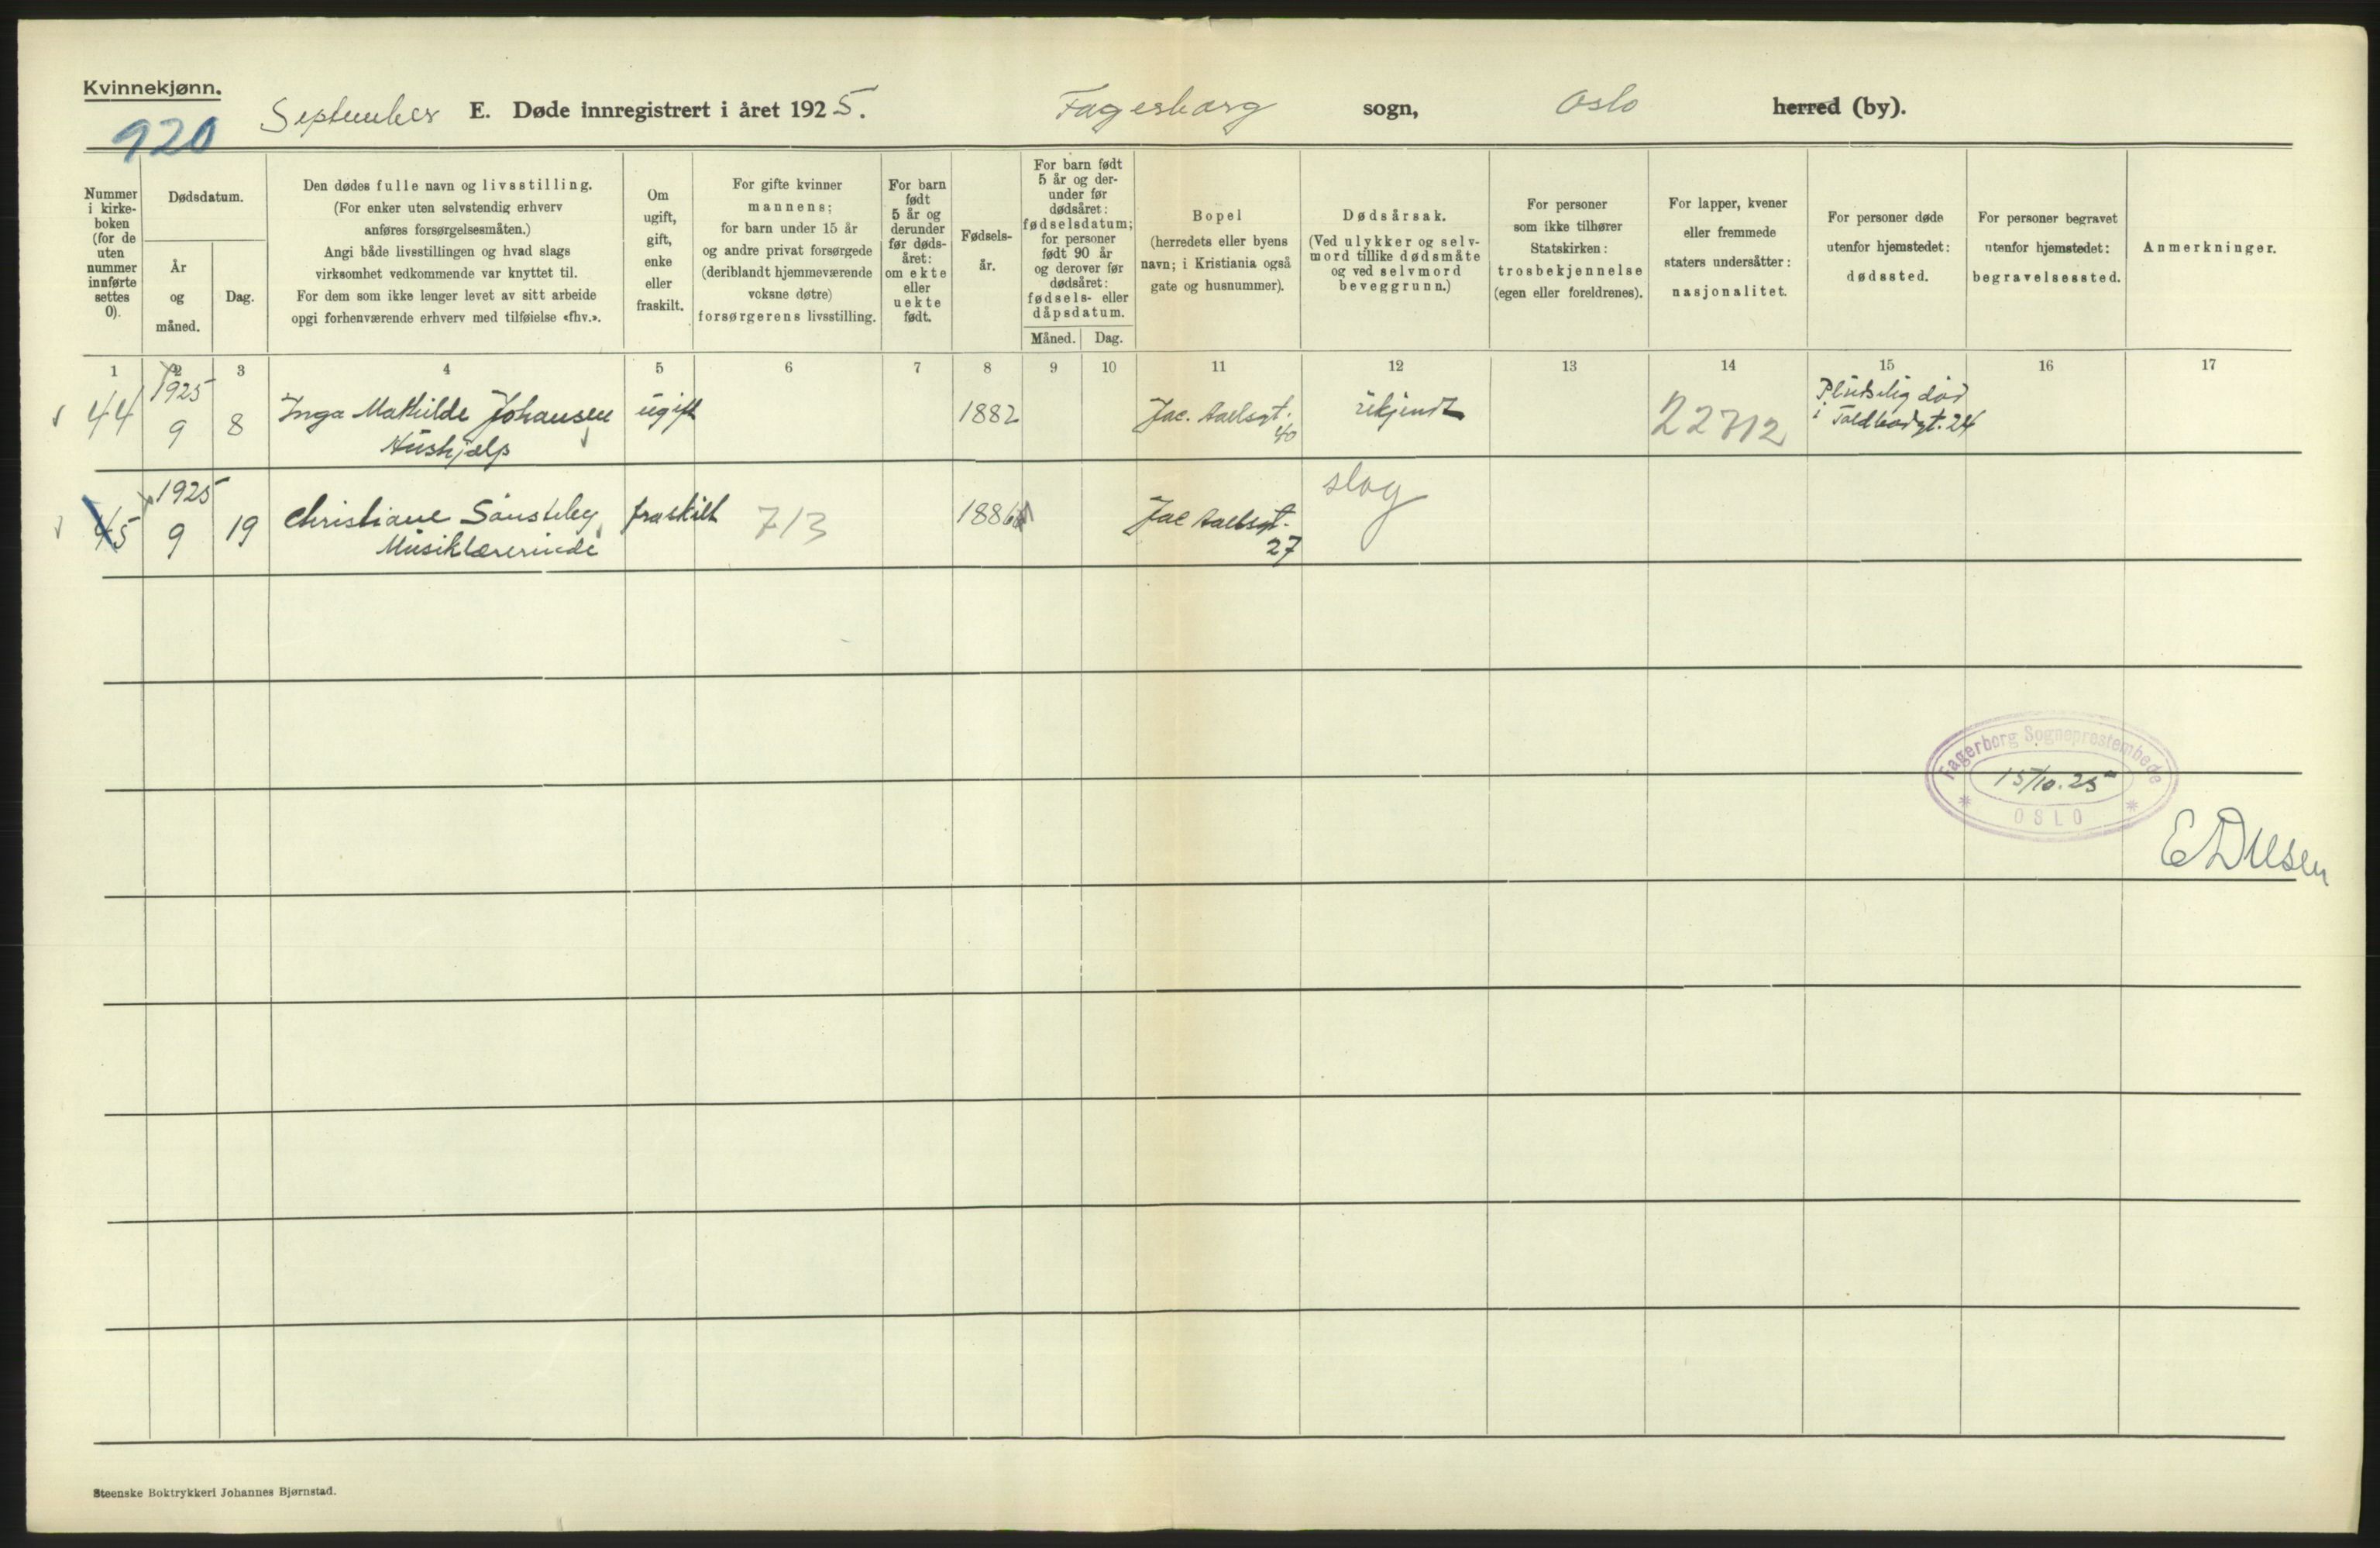 Kvinnekjønn.
920
September E. Døde innregistrert i året 1925. Fagerborg sogn, Oslo herred (by).
Nummer i kirke-
boken
(for de
uten
nummer
innførte
settes
0).
Dødsdatum.
År
og
måned.
Dag.
Den dødes fulle navn og livsstilling.
(For enker uten selvstendig erhverv
anføres forsørgelsesmåten.)
Angi både livsstillingen og hvad slags
virksomhet vedkommende var knyttet til.
For dem som ikke lenger levet av sitt arbeide
opgi forhenværende erhverv med tilføielse «fhv.».
Om
ugift,
gift,
enke
eller
fraskilt.
For gifte kvinner
mannens;
for barn under 15 år
og andre privat forsørgede
(deriblandt hjemmeværende
voksne døtre)
forsørgerens livsstilling.
For barn
født
5 år og
derunder
før døds-
året:
om ekte
eller
uekte
født.
Fødsels-
år.
For barn født
5 år og der-
under før
dødsåret:
fødselsdatum;
for personer
født 90 år
og derover før
dødsåret:
fødsels- eller
dåpsdatum.
Måned. Dag.
Bopel
(herredets eller byens
navn; i Kristiania også
gate og husnummer).
Dødsårsak.
(Ved ulykker og selv-
mord tillike dødsmåte
og ved selvmord
beveggrunn.)
For personer
som ikke tilhører
Statskirken:
trosbekjennelse
(egen eller foreldrenes).
For lapper, kvener
eller fremmede
staters undersåtter:
nasjonalitet.
For personer døde
utenfor hjemstedet:
dødssted.
For personer begravet
utenfor hjemstedet:
begravelsessted.
Anmerkninger.
1 2 3 4 5 6 7 8 9 10 11 12 13 14 15 16 17
44 1925 9 8 Inga Mathilde Johansen ugift 1882 Jac. Aallsgt. 40 ukjendt 22712 Plutselig død
Hushjælp i Toldbodgt. 24
45 1925 9 19 Christiane Sønsteby fraskilt 713 1886 Jac Aallsgt. 27 slag
Musiklærerinde
Fagerborg Sogneprestembede
15/10.25
OSLO
Steenske Boktrykkeri Johannes Bjørnstad.